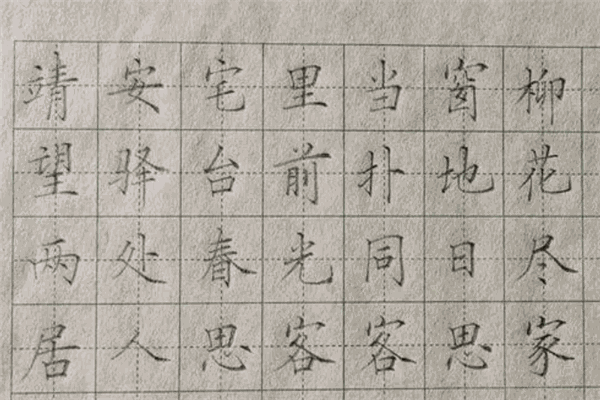 靖安宅里当窗柳
望驿台前扑地花
两处春光同日尽
居人思客客思家